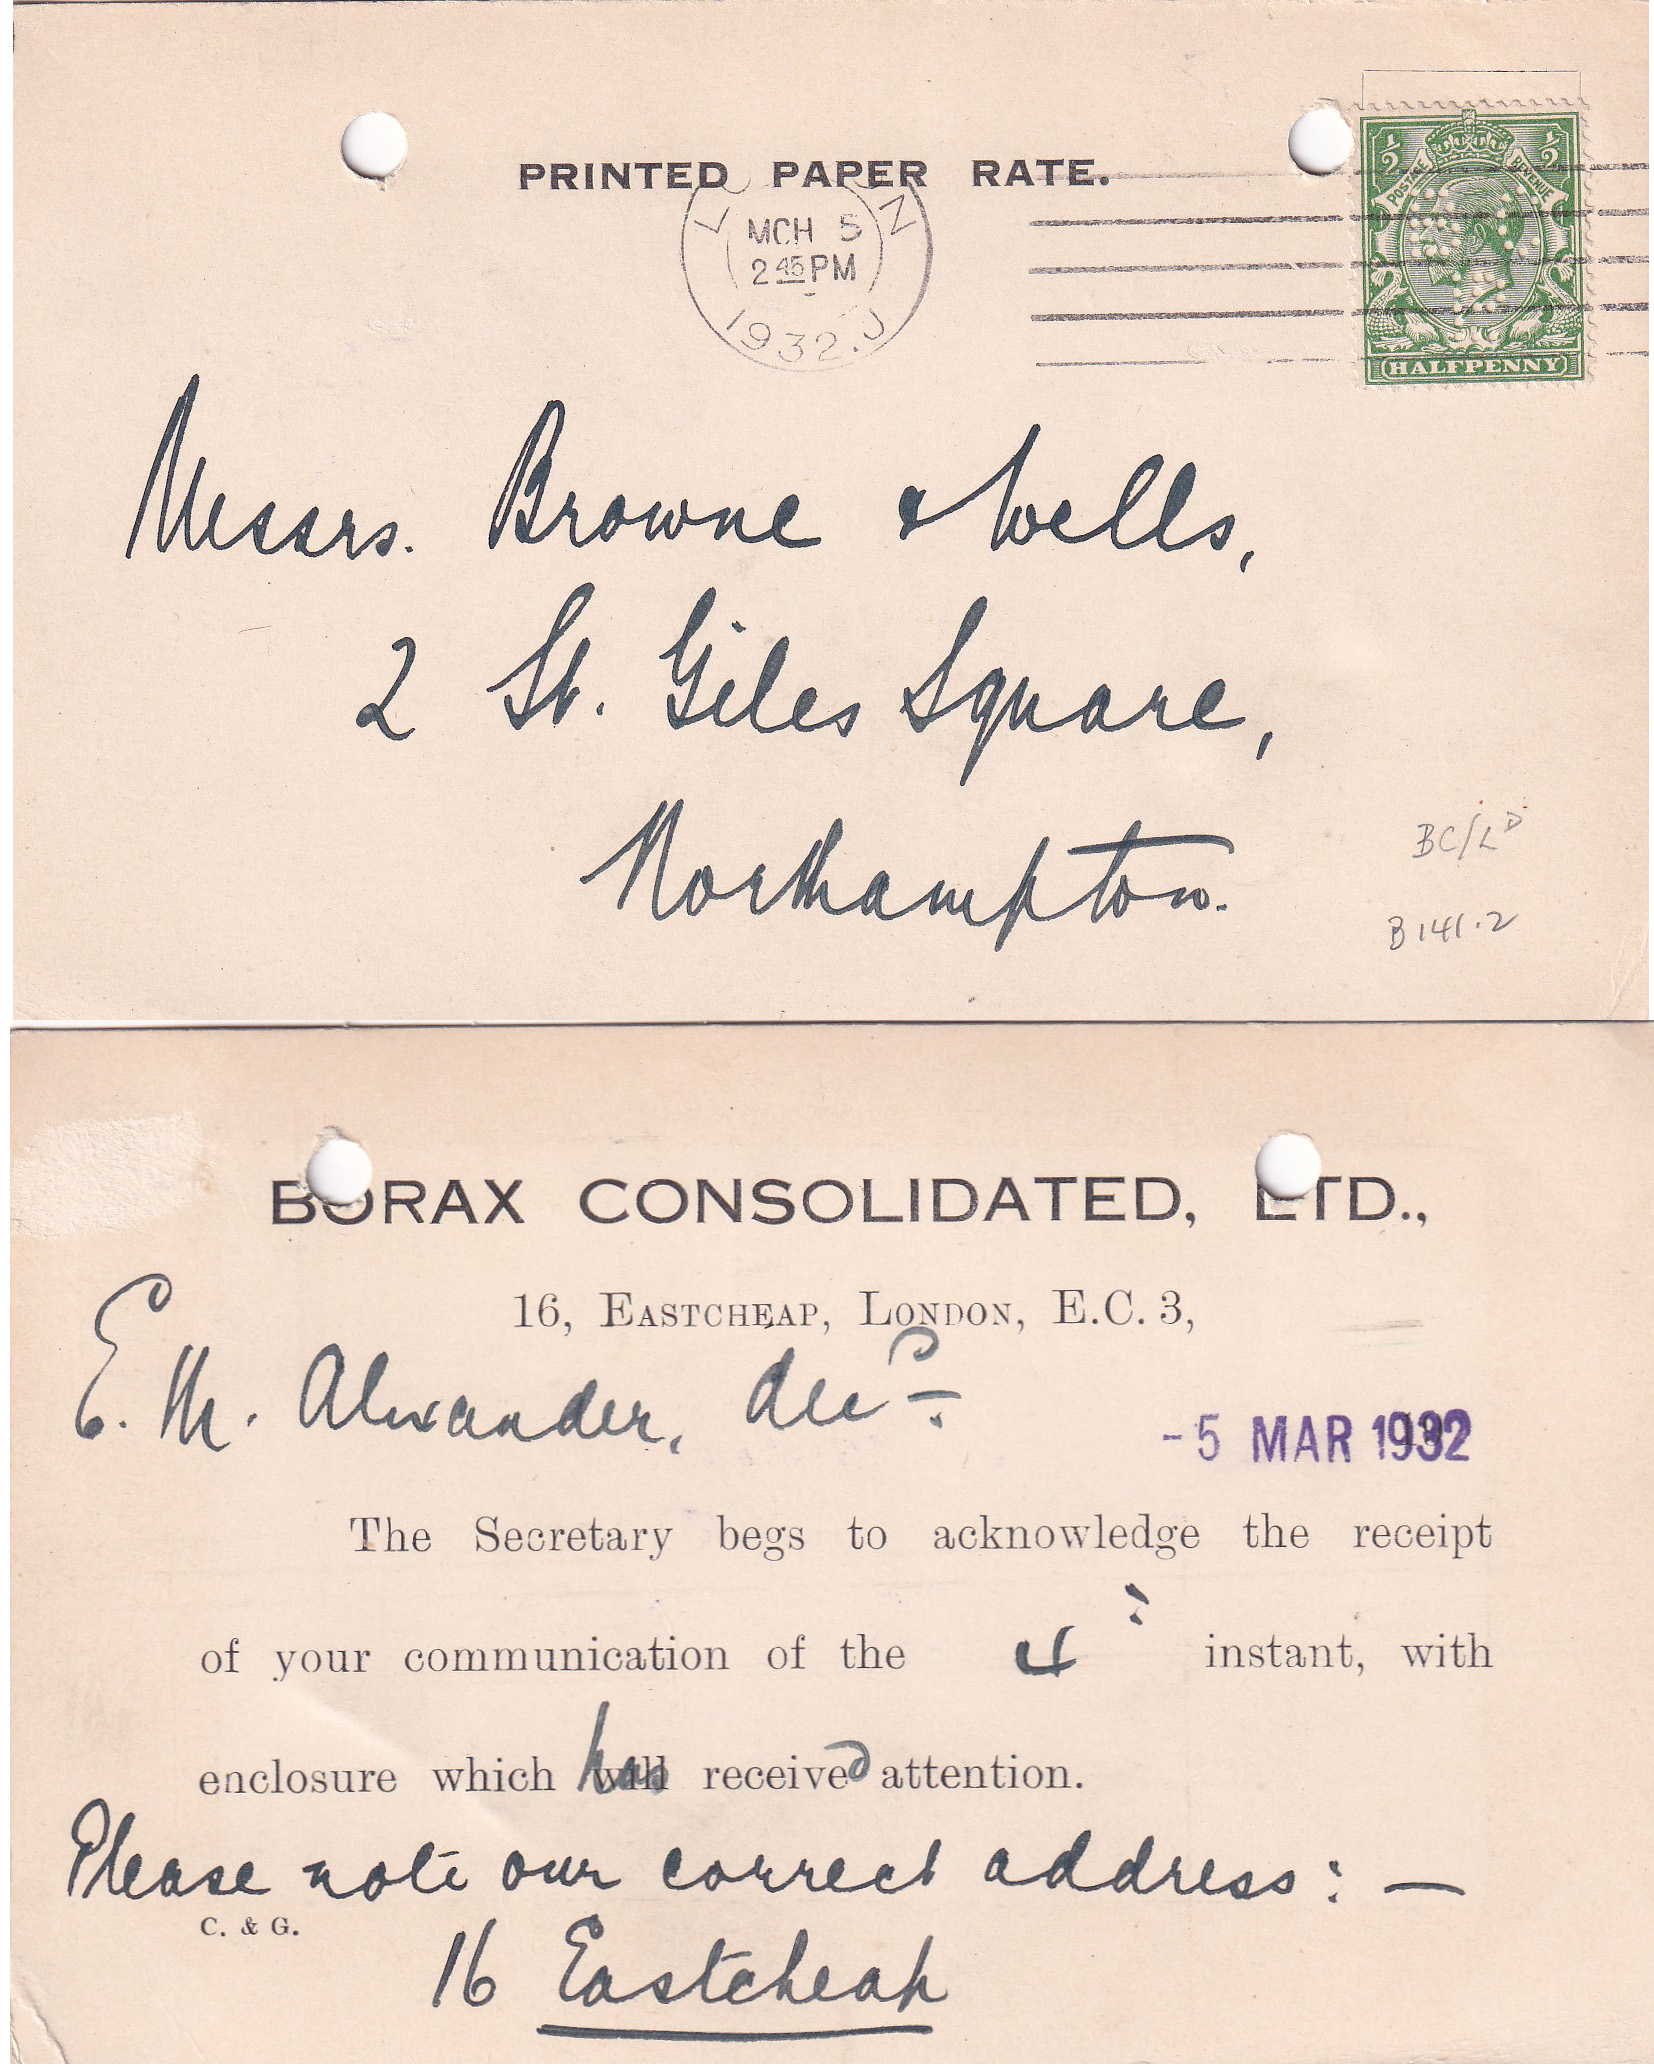 PRINTED PAPER RATE.
MCH 5
2 45 PM
1932. J
1/2 1/2
POSTAGE REVENUE
HALFPENNY
Messrs. Browne & Wells,
2 St. Giles Square,
Northampton.
BC/LD
B141.2
BORAX CONSOLIDATED, LTD.,
16, EASTCHEAP, LONDON, E.C. 3,
E. M. Alexander, decd.
-5 MAR 1932
The Secretary begs to acknowledge the receipt
of your communication of the 4 instant, with
enclosure which has received attention.
Please note our correct address: —
C. & G.
16 Eastcheap